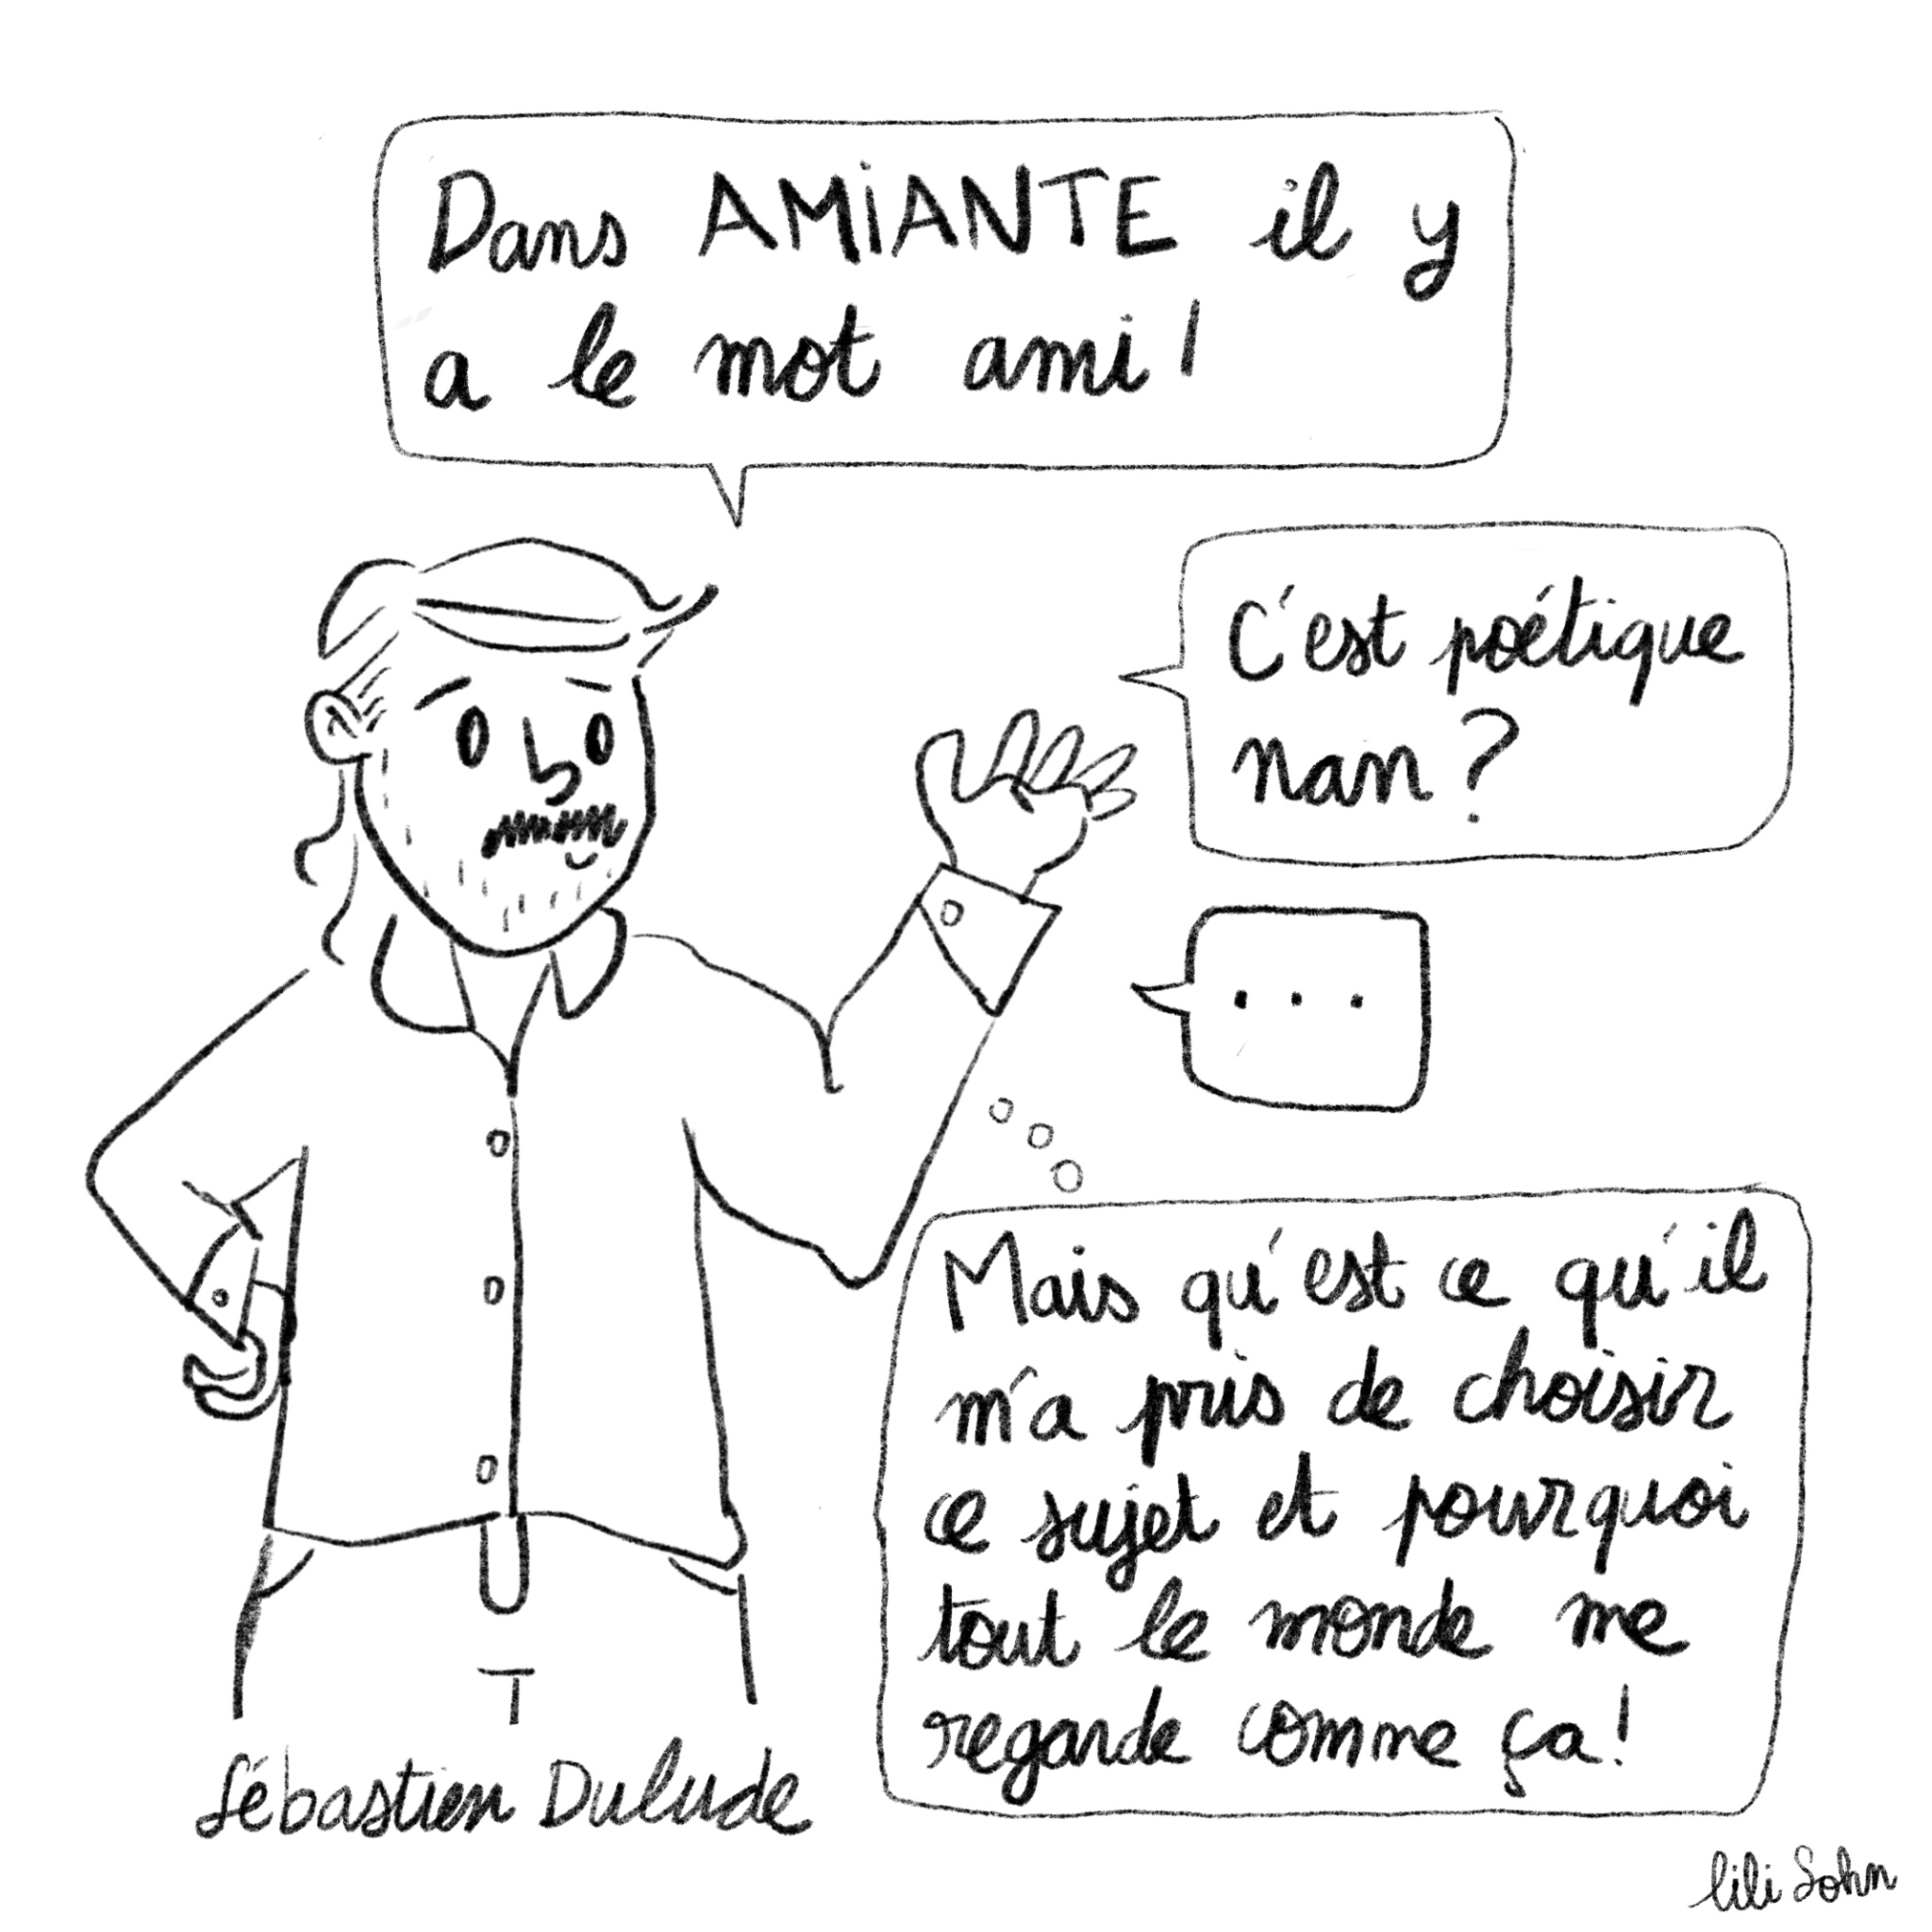 Dans AMiANTE il y
a le mot ami !
C'est poétique
nan ?
...
Mais qu'est ce qu'il
m'a pris de choisir
ce sujet et pourquoi
tout le monde me
regarde comme ça !
Sébastien Dulude
lili Sohn